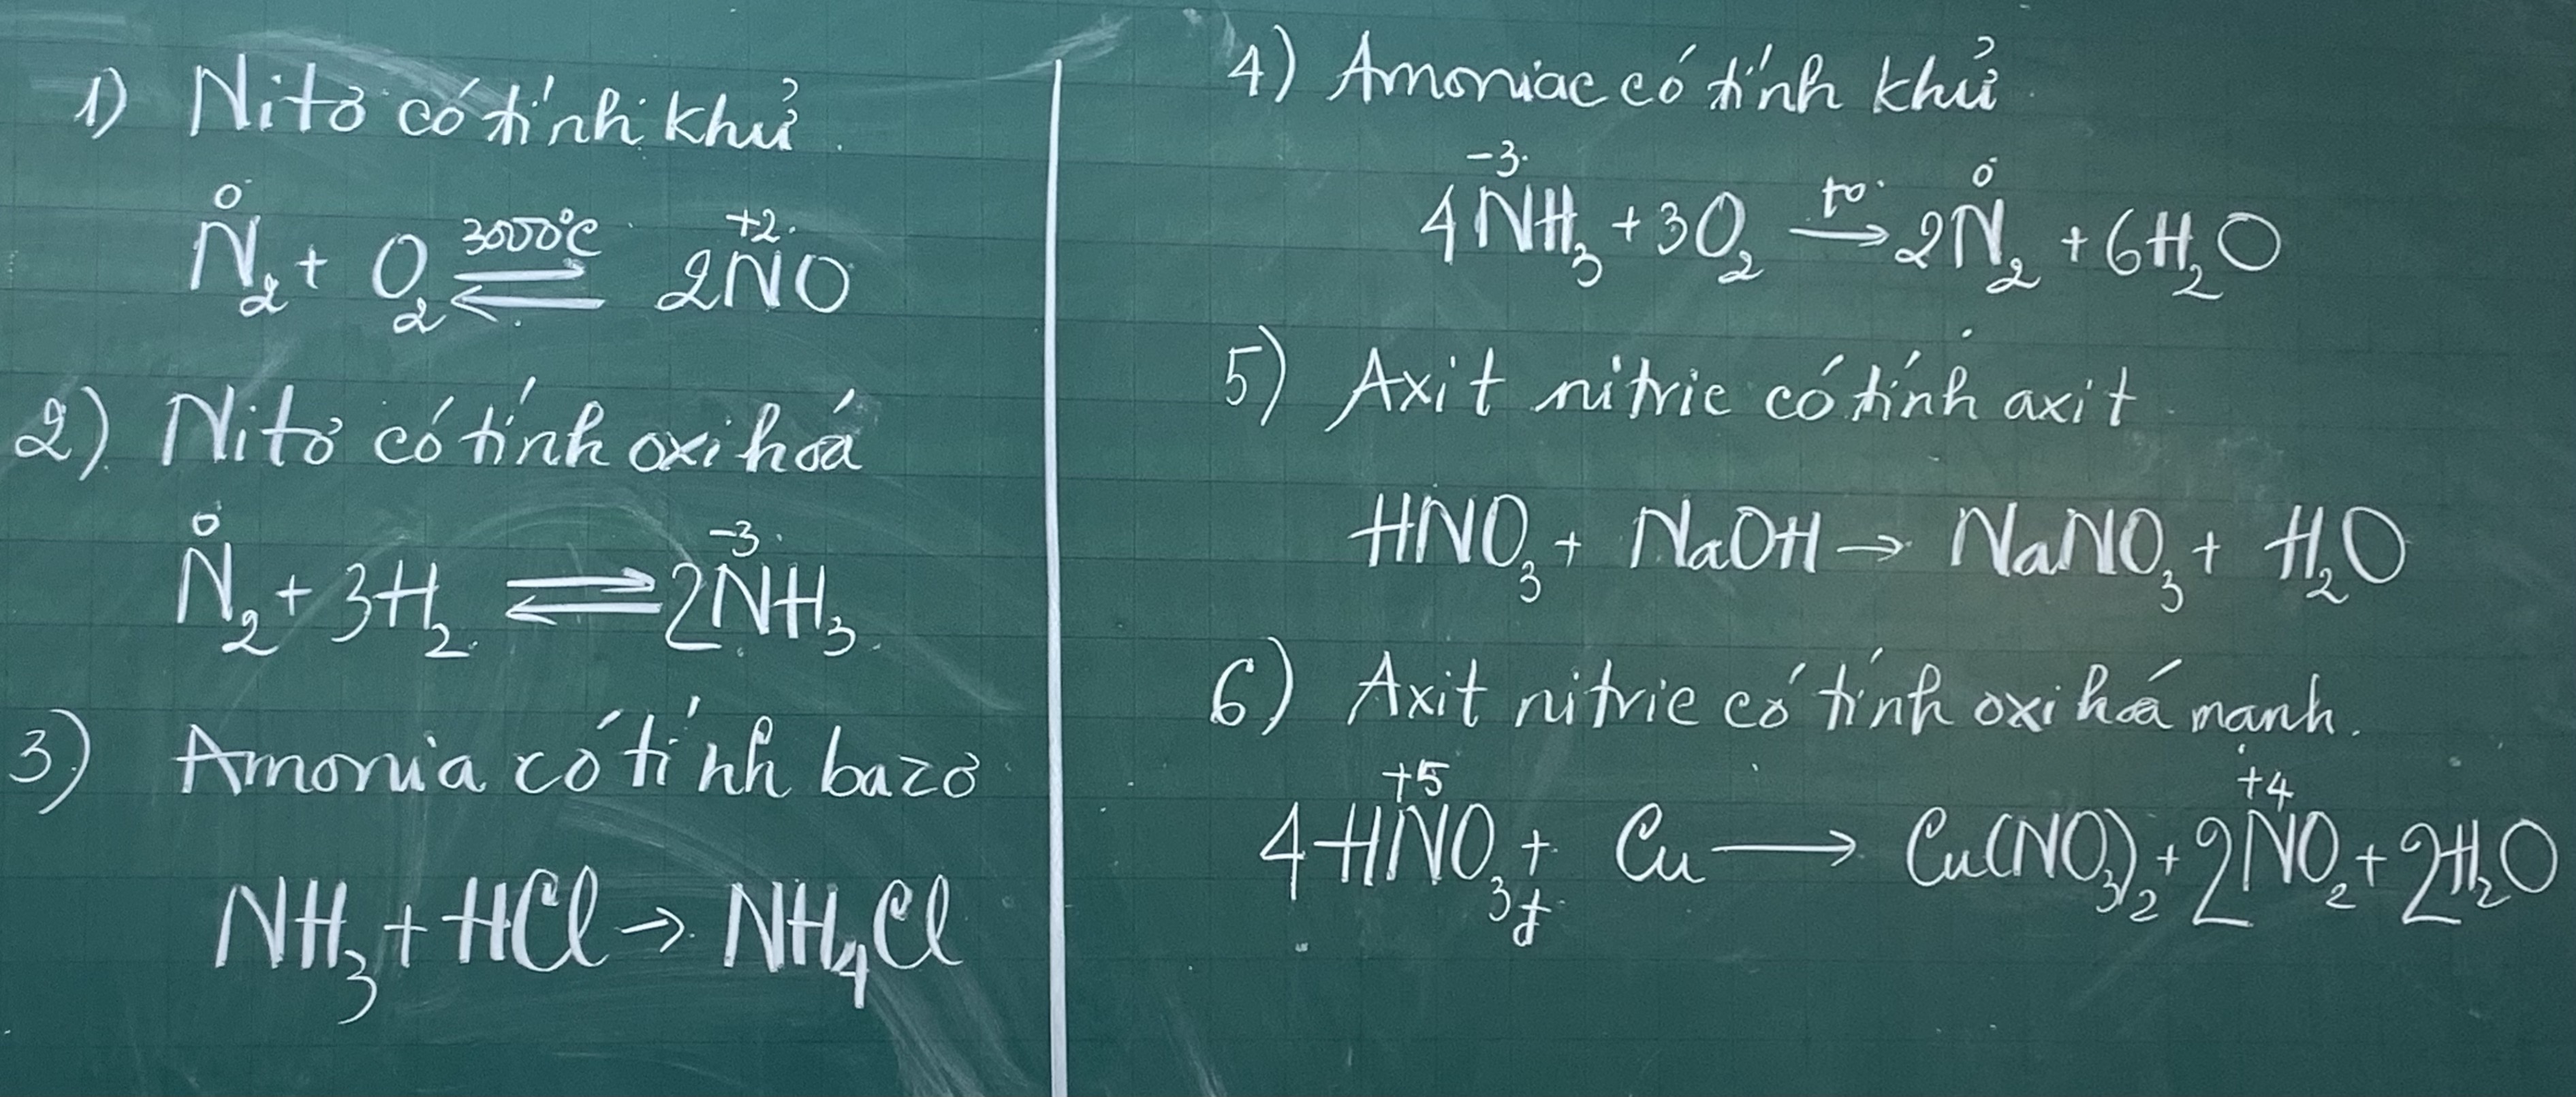 1) Nitơ có tính khử.
0 +2
N₂ + O₂ ⇌ 2NO
3000°C
2) Nitơ có tính oxi hoá
0 -3
N₂ + 3H₂ ⇌ 2NH₃
3) Amonia có tính bazơ
NH₃ + HCl → NH₄Cl
4) Amoniac có tính khử
-3 t° 0
4NH₃ + 3O₂ → 2N₂ + 6H₂O
5) Axit nitric có tính axit
HNO₃ + NaOH → NaNO₃ + H₂O
6) Axit nitric có tính oxi hoá mạnh.
+5 +4
4HNO₃đ + Cu → Cu(NO₃)₂ + 2NO₂ + 2H₂O